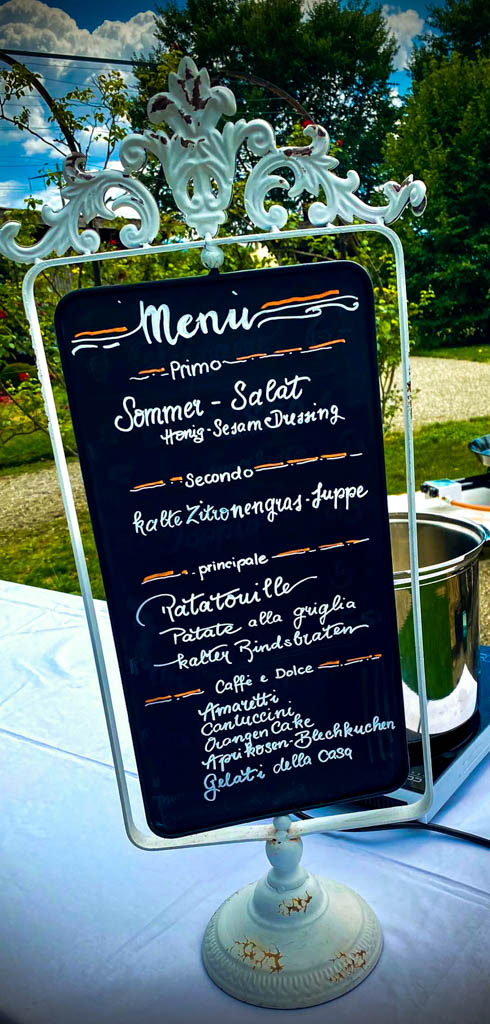 Menù
Primo
Sommer - Salat
Honig-Sesam Dressing
Secondo
kalte Zitronengras-Suppe
principale
Ratatouille
Patate alla griglia
kalter Rindsbraten
Caffè e Dolce
Amaretti
Cantuccini
Orangen Cake
Aprikosen-Blechkuchen
Gelati della casa